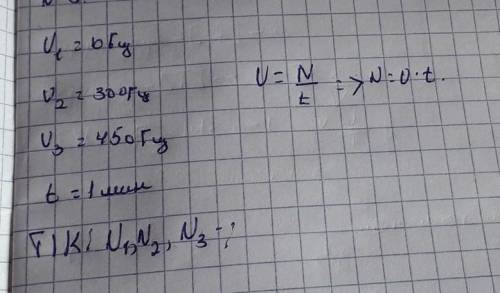 υ₁ = 0 Гц
υ₂ = 300 Гц
υ₃ = 450 Гц
t = 1 мин
T/K/ N₁, N₂, N₃ - ?
υ = N/t => N = υ · t.